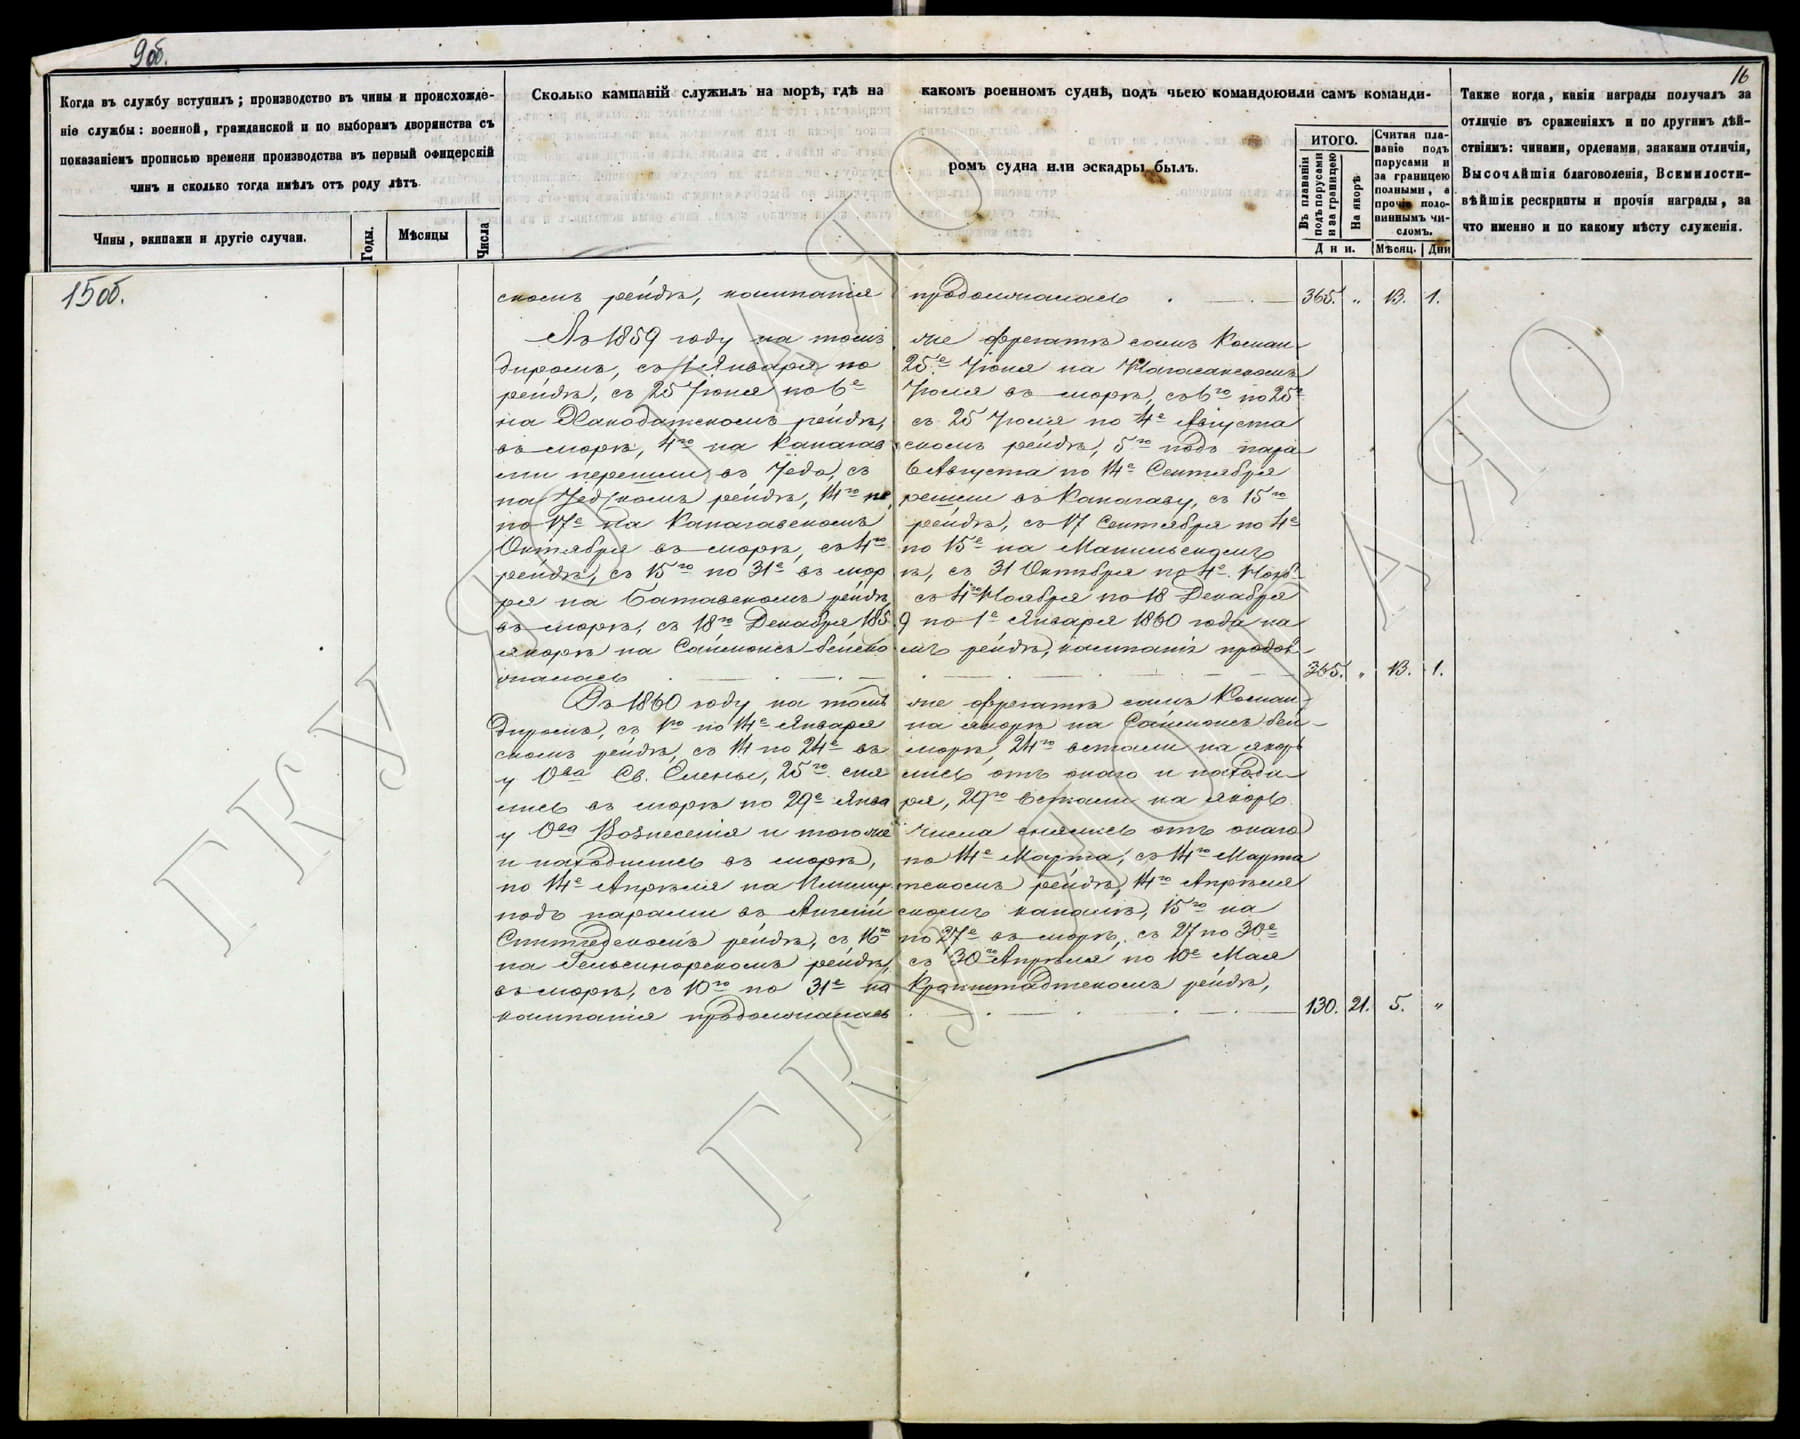 9об.
16
Когда въ службу вступилъ; производство въ чины и происхожде-
ніе службы: военной, гражданской и по выборамъ дворянства съ
показаніемъ прописью времени производства въ первый офицерскій
чинъ и сколько тогда имѣлъ отъ роду лѣтъ.
Чины, экипажи и другіе случаи.
Годы.
Мѣсяцы
Числа
Сколько кампаній служилъ на морѣ, гдѣ на какомъ военномъ суднѣ, подъ чьею командоюили самъ команди-
ромъ судна или эскадры былъ.
ИТОГО.
Въ плаваніи
подъ парусами
и за границею
На якорѣ
Д н и.
Считая пла-
ваніе подъ
парусами и
за границею
полными, а
прочіе поло-
виннымъ чи-
сломъ.
Мѣсяц.
Дни
Также когда, какія награды получалъ за
отличіе въ сраженіяхъ и по другимъ дѣй-
ствіямъ: чинами, орденами, знаками отличія,
Высочайшія благоволенія, Всемилости-
вѣйшіе рескрипты и прочія награды, за
что именно и по какому мѣсту служенія.
15об.
скомъ рейдѣ, кампанія продолжалась . — . — 365. „ 13. 1.
Въ 1859 году на томъ же фрегатѣ самъ Коман-
диромъ, съ 1 Января по 25е Іюня на Нагасакскомъ
рейдѣ, съ 25 Іюня по 6е Іюля въ морѣ, съ 6го по 25е
на Хакодатскомъ рейдѣ, съ 25 Іюля по 4е Августа
въ морѣ, 4го на Канагав скомъ рейдѣ, 5го подъ пара
ми перешли въ Іедо, съ 6 Августа по 14е Сентября
на Іедскомъ рейдѣ, 14го пе решли въ Канагаву, съ 15го
по 17е на Канагавскомъ рейдѣ, съ 17 Сентября по 4е
Октября въ морѣ, съ 4го по 15е на Манильскомъ
рейдѣ, съ 15го по 31е въ мор ѣ, съ 31 Октября по 4е Нояб-
ря на Батавскомъ рейдѣ, съ 4го Ноября по 18 Декабря
въ морѣ, съ 18го Декабря 185 9 по 1е Января 1860 года на
якорѣ на Саймонсъ-бейско мъ рейдѣ, кампанія продол-
жалась . — . — . — 365. „ 13. 1.
Въ 1860 году на томъ же фрегатѣ самъ Коман-
диромъ, съ 1го по 14е Января на якорѣ на Саймонсъ бей-
скомъ рейдѣ, съ 14 по 24е въ морѣ, 24го встали на якорь
у Ова Св. Елены, 25го сня лись отъ онаго и находи-
лись въ морѣ по 29е Янва ря, 29го встали на якорь
у Ова Вознесенія и того же числа снялись отъ онаго
и находились въ морѣ, по 14е Марта, съ 14го Марта
по 14е Апрѣля на Плимут скомъ рейдѣ, 14го Апрѣля
подъ парами въ Англій скомъ каналѣ, 15го на
Спитгедскомъ рейдѣ, съ 16го по 27е въ морѣ, съ 27 по 30е
на Гельсинорскомъ рейдѣ, съ 30го Апрѣля по 10е Мая
въ морѣ, съ 10го по 31е на Кронштадтскомъ рейдѣ,
кампанія продолжалась . — . — . — 130. 21. 5. „
ГКУ ГАЯО
ГКУ ГАЯО
ГАЯО